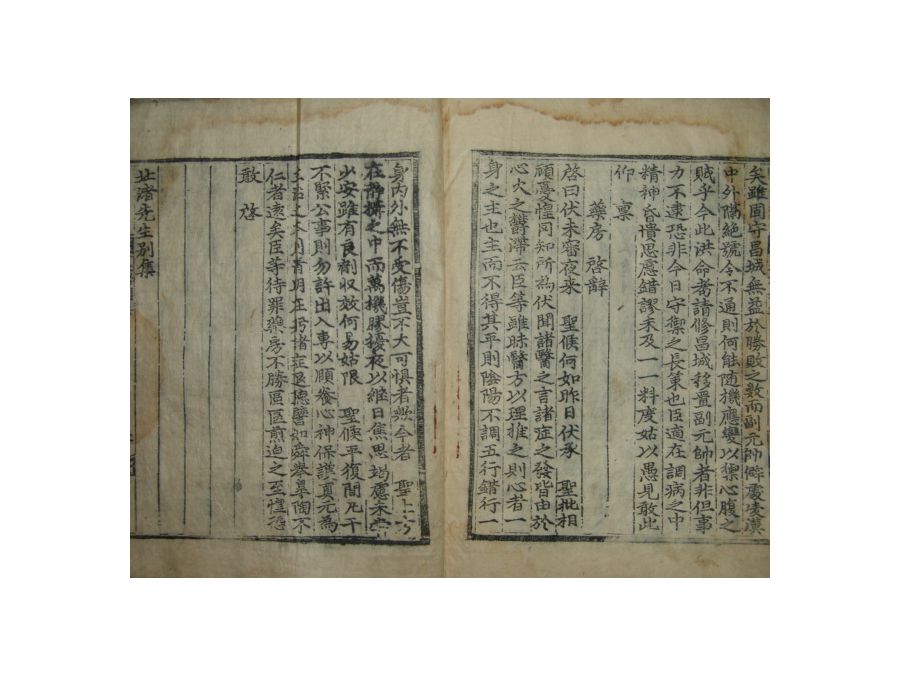 矣雖固守昌城無益於勝敗之數而副元帥僻處凌漢
中外隔絶號令不通則何能随機應變以禦心腹之
賊乎今此洪命耇請修昌城移置副元帥者非但事
力不逮恐非今日守禦之長策也臣適在調病之中
精神昏憒思慮錯謬未及一一料度姑以愚見敢此
仰稟
藥房 啓辭
啓曰伏未審夜來 聖候何如昨日伏承 聖批相
顧憂惶罔知所爲伏聞諸醫之言諸症之發皆由於
心火之鬱滯云臣等雖昧醫方以理推之則心者一
身之主也主而不得其平則陰陽不調五行錯行一
身內外無不受傷豈不大可惧者歟今者 聖
在靜攝之中而萬機膠擾夜以継日焦思竭慮未
少安雖有良劑收效何易姑限 聖候平復間凡干
不緊公事則勿許出入專以頤養心神保護真元為
諸症退聽如舜擧皐陶不
仁者遠矣臣等待罪藥房不勝區區煎迫之至惶恐
敢啓
北渚先生別集